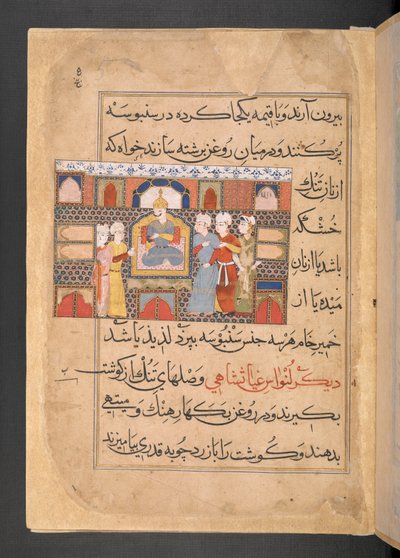 بیرون آرند و با قیمه یکجا کرده در سنبوسه
پر کنند و در میان روغن برشته سازند خواه که
از نان تنک
خشکه
باشد یا از نان
میده یا از
خمیر خام هر سه جنس سنبوسه بپزد لذیذ باشد
دیکر غیاثشاهی وصلهای تنک از کوشت
بکیرند و در روغن بکهار هینک و میتهی
بدهند و کوشت را با زردچوبه قدری بیامیزند